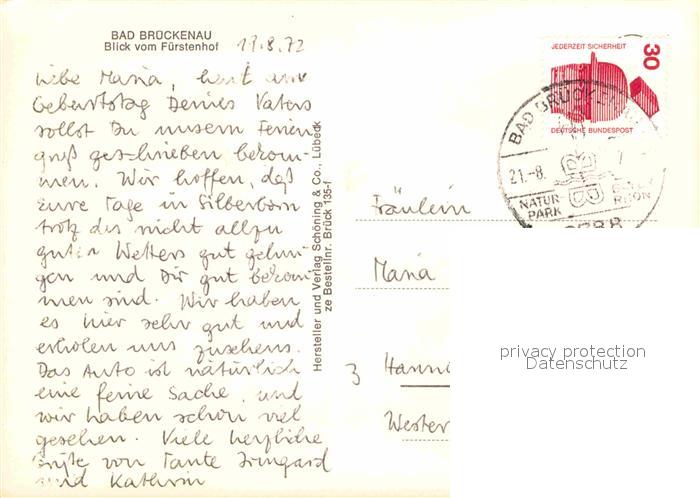 BAD BRÜCKENAU
Blick vom Fürstenhof
19.8.72
Liebe Maria, heut am
Geburtstag Deines Vaters
sollst Du unsern Ferien
gruß geschrieben bekom-
men. Wir hoffen, daß
Eure Tage in Silberborn
trotz des nicht allzu
guten Wetters gut gelun-
gen und Dir gut bekom-
men sind. Wir haben
es hier sehr gut und
erholen uns zusehens.
Das Auto ist natürlich
eine feine Sache, und
wir haben schon viel
gesehen. Viele herzliche
Grüße von Tante Irmgard
und Kathrin
Hersteller und Verlag Schöning & Co., Lübeck
ze Bestellnr. Brück 135-f
JEDERZEIT SICHERHEIT
30
DEUTSCHE BUNDESPOST
BAD BRÜCKENAU
21.-8.
NATUR
PARK
RHÖN
Fräulein
Maria
3 Hanno
Wester
privacy protection
Datenschutz